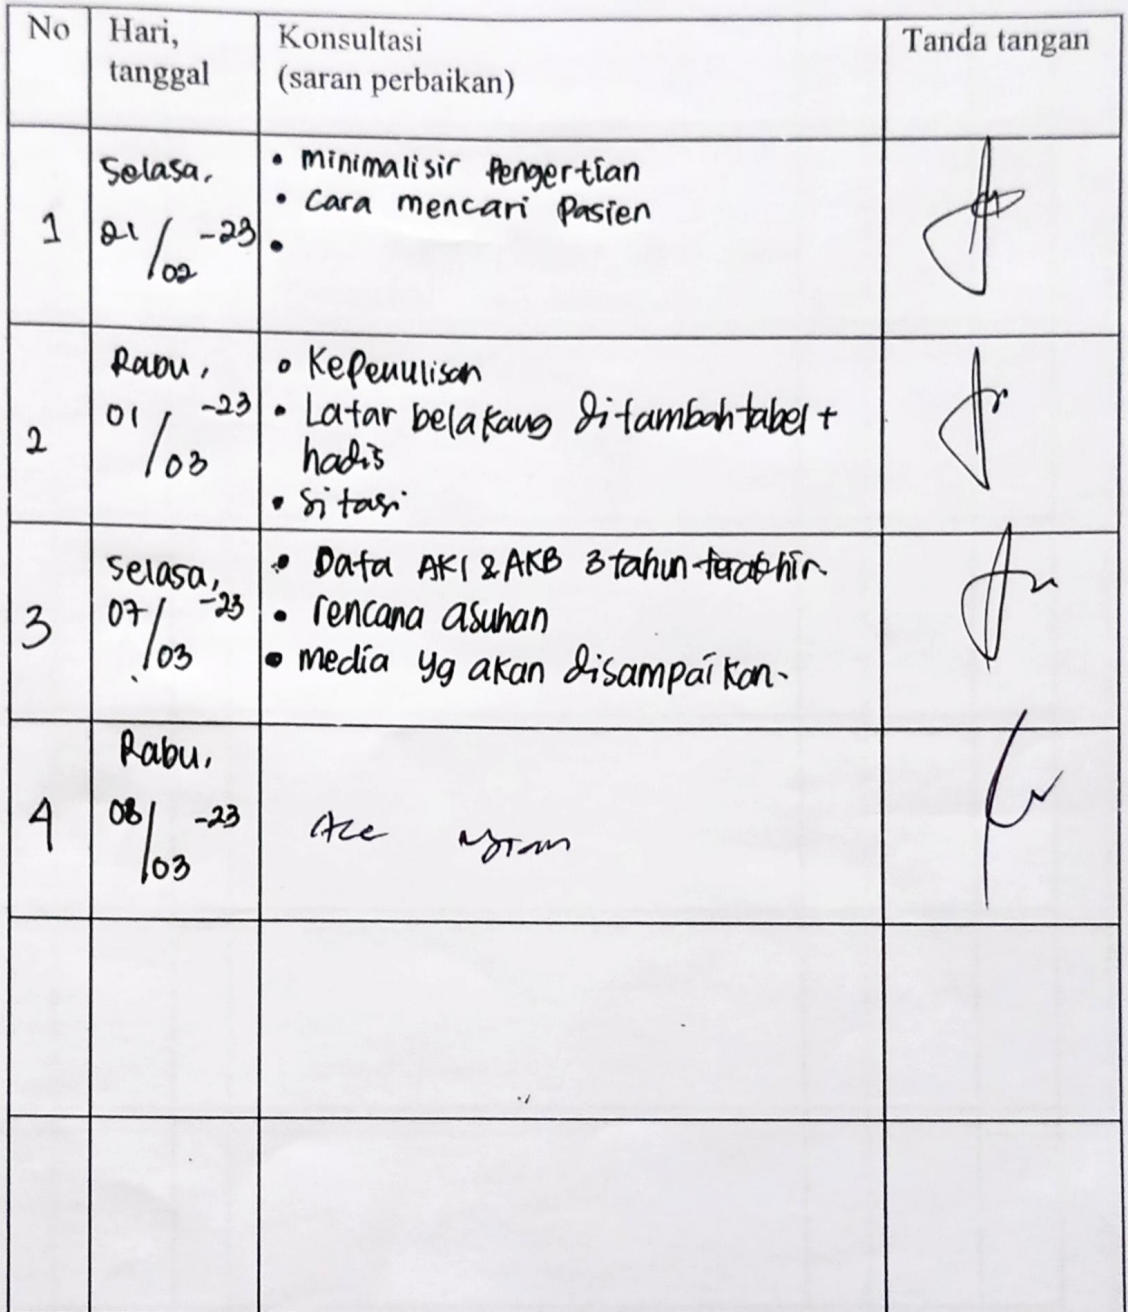 No
Hari,
tanggal
Konsultasi
(saran perbaikan)
Tanda tangan
1
Selasa,
21/02-23
• minimalisir Pengertian
• Cara mencari Pasien
•
2
Rabu,
01/03-23
• Kepenulisan
• Latar belakang ditambah tabel +
hadis
• Sitasi
3
Selasa,
07/03-23
• Data AKI & AKB 3 tahun terakhir.
• rencana asuhan
• media yg akan disampaikan.
4
Rabu,
08/03-23
Acc